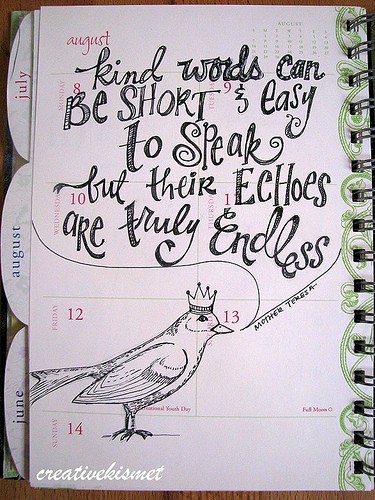 AUGUST
august
kind words can
BE SHORT & easy
to SPEAK
but their ECHOES
ARE truly Endless
MOTHER TERESA
MONDAY 8
TUESDAY 9
WEDNESDAY 10
THURSDAY 1
FRIDAY 12
13
SUNDAY 14
national Youth Day
Full Moon O
july
august
june
creativekismet